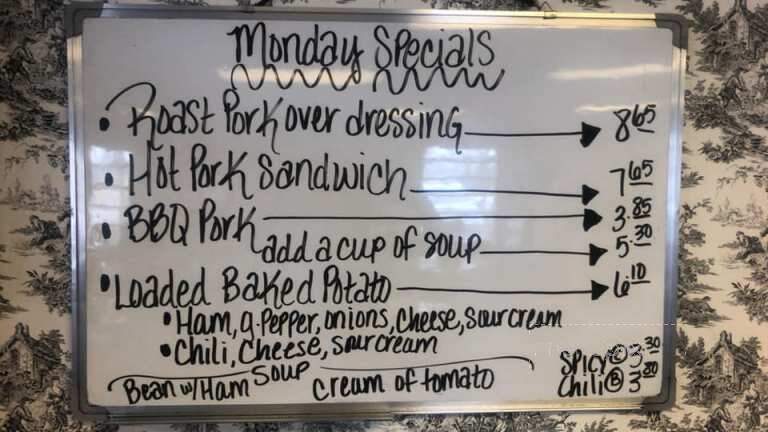 Monday Specials
• Roast Pork over dressing 8 65
• Hot Pork Sandwich 7 65
• BBQ Pork 3.85
add a cup of soup 5.30
• Loaded Baked Potato 6.10
• Ham, g.Pepper, onions, Cheese, Sour cream
• Chili, Cheese, Sour cream
Soup
Bean w/ Ham cream of tomato
SPICY © 3.30
Chili Ⓑ 3.80